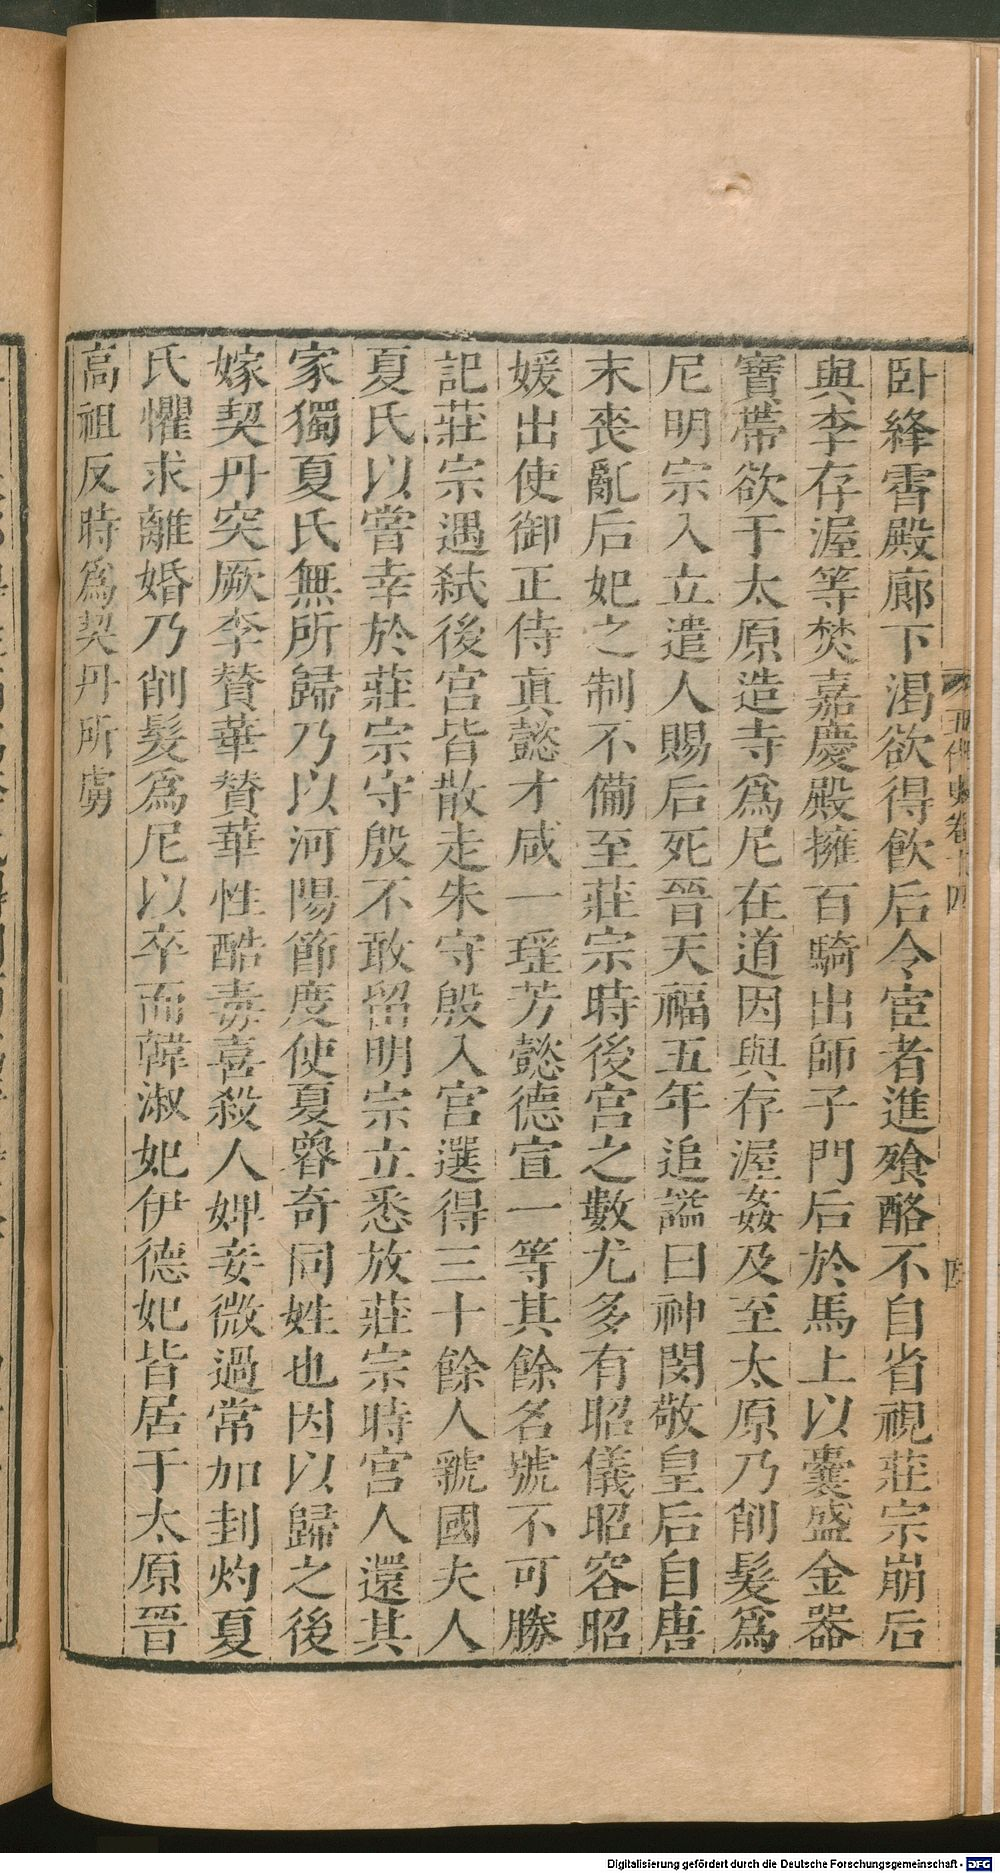 臥絳霄殿廊下渴欲得飲后令宦者進飱酪不自省視莊宗崩后
與李存渥等焚嘉慶殿擁百騎出師子門后於馬上以囊盛金器
寶帶欲于太原造寺爲尼在道因與存渥姦及至太原乃削髮爲
尼明宗入立遣人賜后死晉天福五年追諡曰神閔敬皇后自唐
末喪亂后妃之制不備至莊宗時後宮之數尤多有昭儀昭容昭
媛出使御正侍眞懿才咸一瑶芳懿德宣一等其餘名號不可勝
記莊宗遇弑後宮皆散走朱守殷入宮選得三十餘人虢國夫人
夏氏以嘗幸於莊宗守殷不敢留明宗立悉放莊宗時宮人還其
家獨夏氏無所歸乃以河陽節度使夏魯奇同姓也因以歸之後
嫁契丹突厥李贊華贊華性酷毒喜殺人婢妾微過常加刲灼夏
氏懼求離婚乃削髮爲尼以卒而韓淑妃伊德妃皆居于太原晉
高祖反時爲契丹所虜
五代史卷十四
四
Digitalisierung gefördert durch die Deutsche Forschungsgemeinschaft - DFG